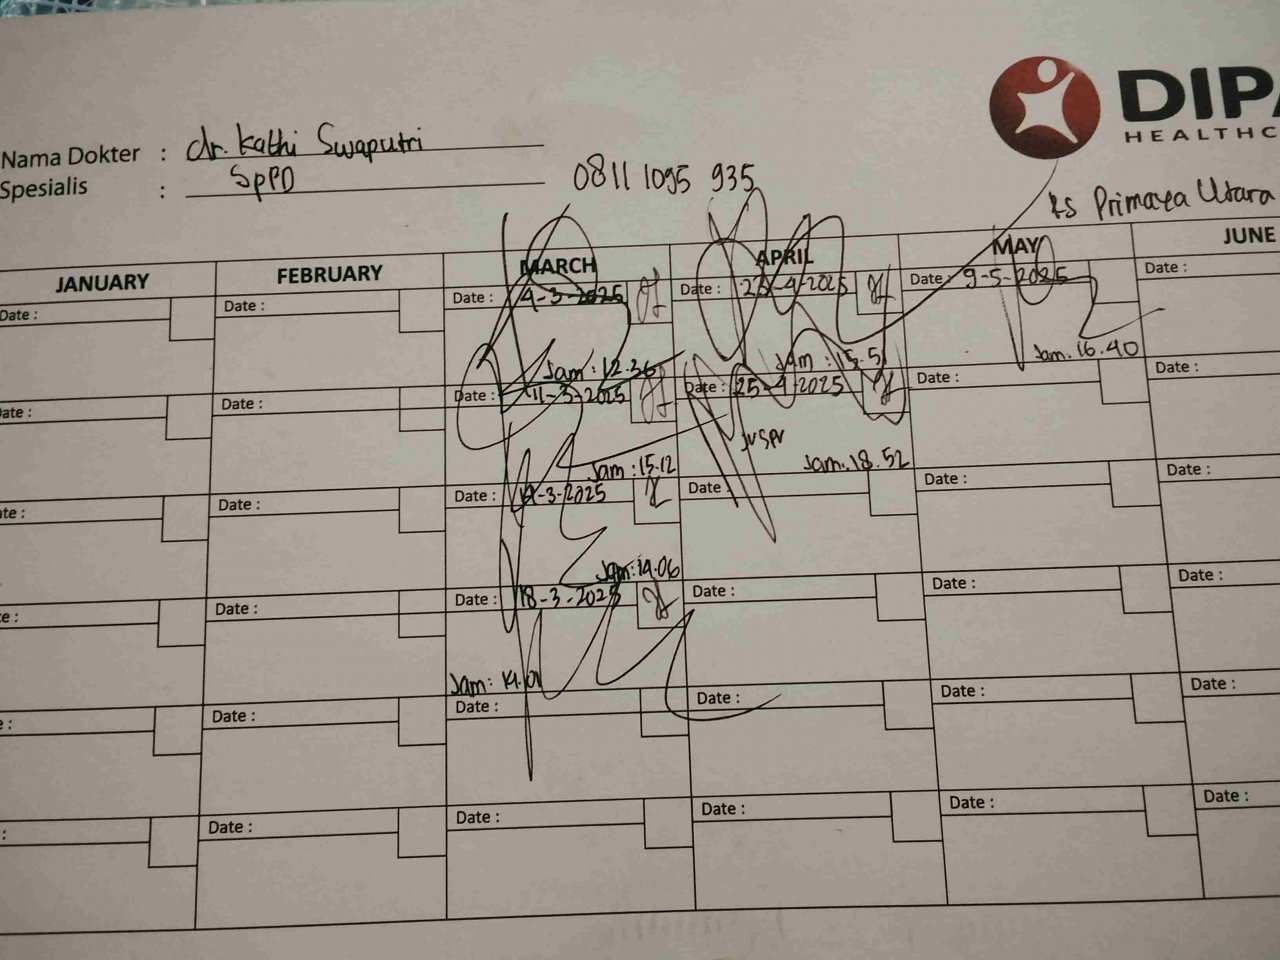 DIPA
HEALTHC
Nama Dokter : dr. Kathi Swaputri
Spesialis : SpPD
0811 1095 935
RS Primaya Utara
JANUARY FEBRUARY MARCH APRIL MAY JUNE
Date : Date : Date : 4-3-2025 Date : Date : 9-5-2025 Date :
Jam : 12.36 Jam : 15.5 Jam. 16.40
Date : Date : Date : 11-3-2025 Date : 25-4-2025 Date : Date :
Jam : 15.12 Jam. 18.52
Date : Date : -3-2025 Date : Date : Date :
Jam : 14.06
Date : Date : 18-3-2025 Date : Date : Date :
Jam : 14.01
Date : Date : Date : Date : Date :
Date : Date : Date : Date : Date :